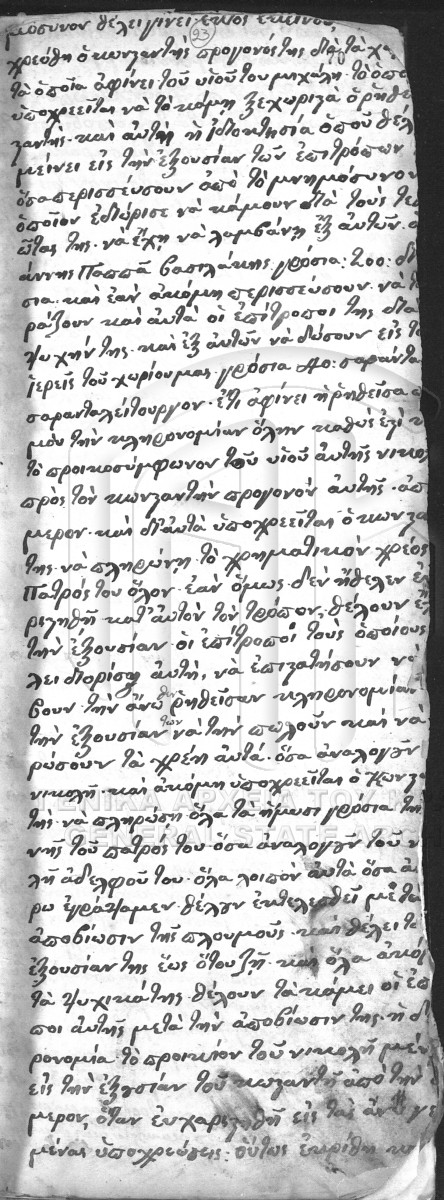 μόσυνον θέλει γίνει ἐκτὸς ἐκείνου,
93
χρεόθη ὁ κωνζαντῆς προγονός της διὰ τὰ
τὰ ὁποῖα ἀφίνει τοῦ υἱοῦ του μιχάλη· τὸ ὁπο
ὑποχρεεῖται νὰ τὸ κάμῃ ξεχωριζὰ ὁ ῥηθε
ζαντῆς· καὶ αὐτὴ ἡ ἰδιοκτησία ὁποῦ θέλ
μείνει εἰς τὴν ἐξουσίαν τῶν ἐπιτρόπων
ὅσα περισσεύσουν ἀπὸ τὸ μνημόσυνον
ὁποῖον ἐδιόρισε νὰ κάμουν διὰ τοὺς
της· νὰ ἔχῃ νὰ λαμβάνῃ ἐξ αὐτῶν·
άννης Παππᾶ βασιλάκης γρόσια: 200: δι
σια· καὶ ἐὰν ἀκόμη περισσεύσουν· νὰ
ράζουν καὶ αὐτὰ οἱ ἐπίτροποι της διὰ
ψυχήν της· καὶ ἐξ αὐτῶν νὰ δώσουν εἰς τ
ἱερεῖς τοῦ χωρίου μας γρόσια 40: σαραντα
σαρανταλείτουργον· ἔτι ἀφίνει ἡ ῥηθεῖσα
μου τὴν κληρονομίαν ὅλην καθὼς ἔχει
τὸ προικοσύμφωνον τοῦ υἱοῦ αὐτῆς νικο
πρὸς τὸν κωνζαντὴν προγονὸν αὐτῆς· ἀπ
μερον· καὶ δι' αὐτὰ ὑποχρεεῖται ὁ κωνζα
της νὰ πληρώνῃ τὸ χρηματικὸν χρέος
Πατρός του ὅλον· ἐὰν ὅμως δὲν ἤθελεν
ρεζηθῆ κατ' αὐτὸν τὸν τρόπον, θέλουν
τὴν ἐξουσίαν οἱ ἐπίτροποι τοὺς ὁποίους
λει διορίσῃ αὐτή, νὰ ἐπιζατήσουν νὰ
βουν τὴν ἄνωθεν ῥηθεῖσαν κληρονομίαν
τὴν ἐξουσίαν των νὰ τὴν πωλοῦν καὶ νὰ
ρώσουν τὰ χρέη αὐτά· ὅσα ἀναλογοῦν
νικολῆ· καὶ ἀκόμη ὑποχρεεῖται ὁ κωνζα
τῆς νὰ πληρώσῃ ὅλα τὰ ἥμισι γρόσια τῆς
νης τοῦ πατρός του· ὅσα ἀναλογοῦν τοῦ ν
λῆ ἀδελφοῦ του· ὅλα λοιπὸν αὐτὰ ὅσα ἀ
ρω ἐγράψαμεν θέλουν ἐκτελεσθεῖ μετὰ
ἀποβίωσιν τῆς πλουμοῦς· καὶ θέλει τὰ
ἐξουσίαν της ἕως ὅτου ζῇ· καὶ ὅλα ἀκό
τὰ ψυχικά της θέλουν τὰ κάμει οἱ ἐπ
ποι αὐτῆς μετὰ τὴν ἀποβίωσιν της· ἡ δ
ρονομία τὸ προικίον τοῦ νικολῆ μέν
εἰς τὴν ἐξουσίαν τοῦ κωζαντῆ ἀπὸ τὴν
μερον, ὅταν εὐχαριζηθῇ εἰς τὰς
μένας ὑποχρεώσεις· οὕτως ἐκρίθη
ΓΕΝΙΚΑ ΑΡΧΕΙΑ ΤΟΥ Κ
GENERAL STATE ARC